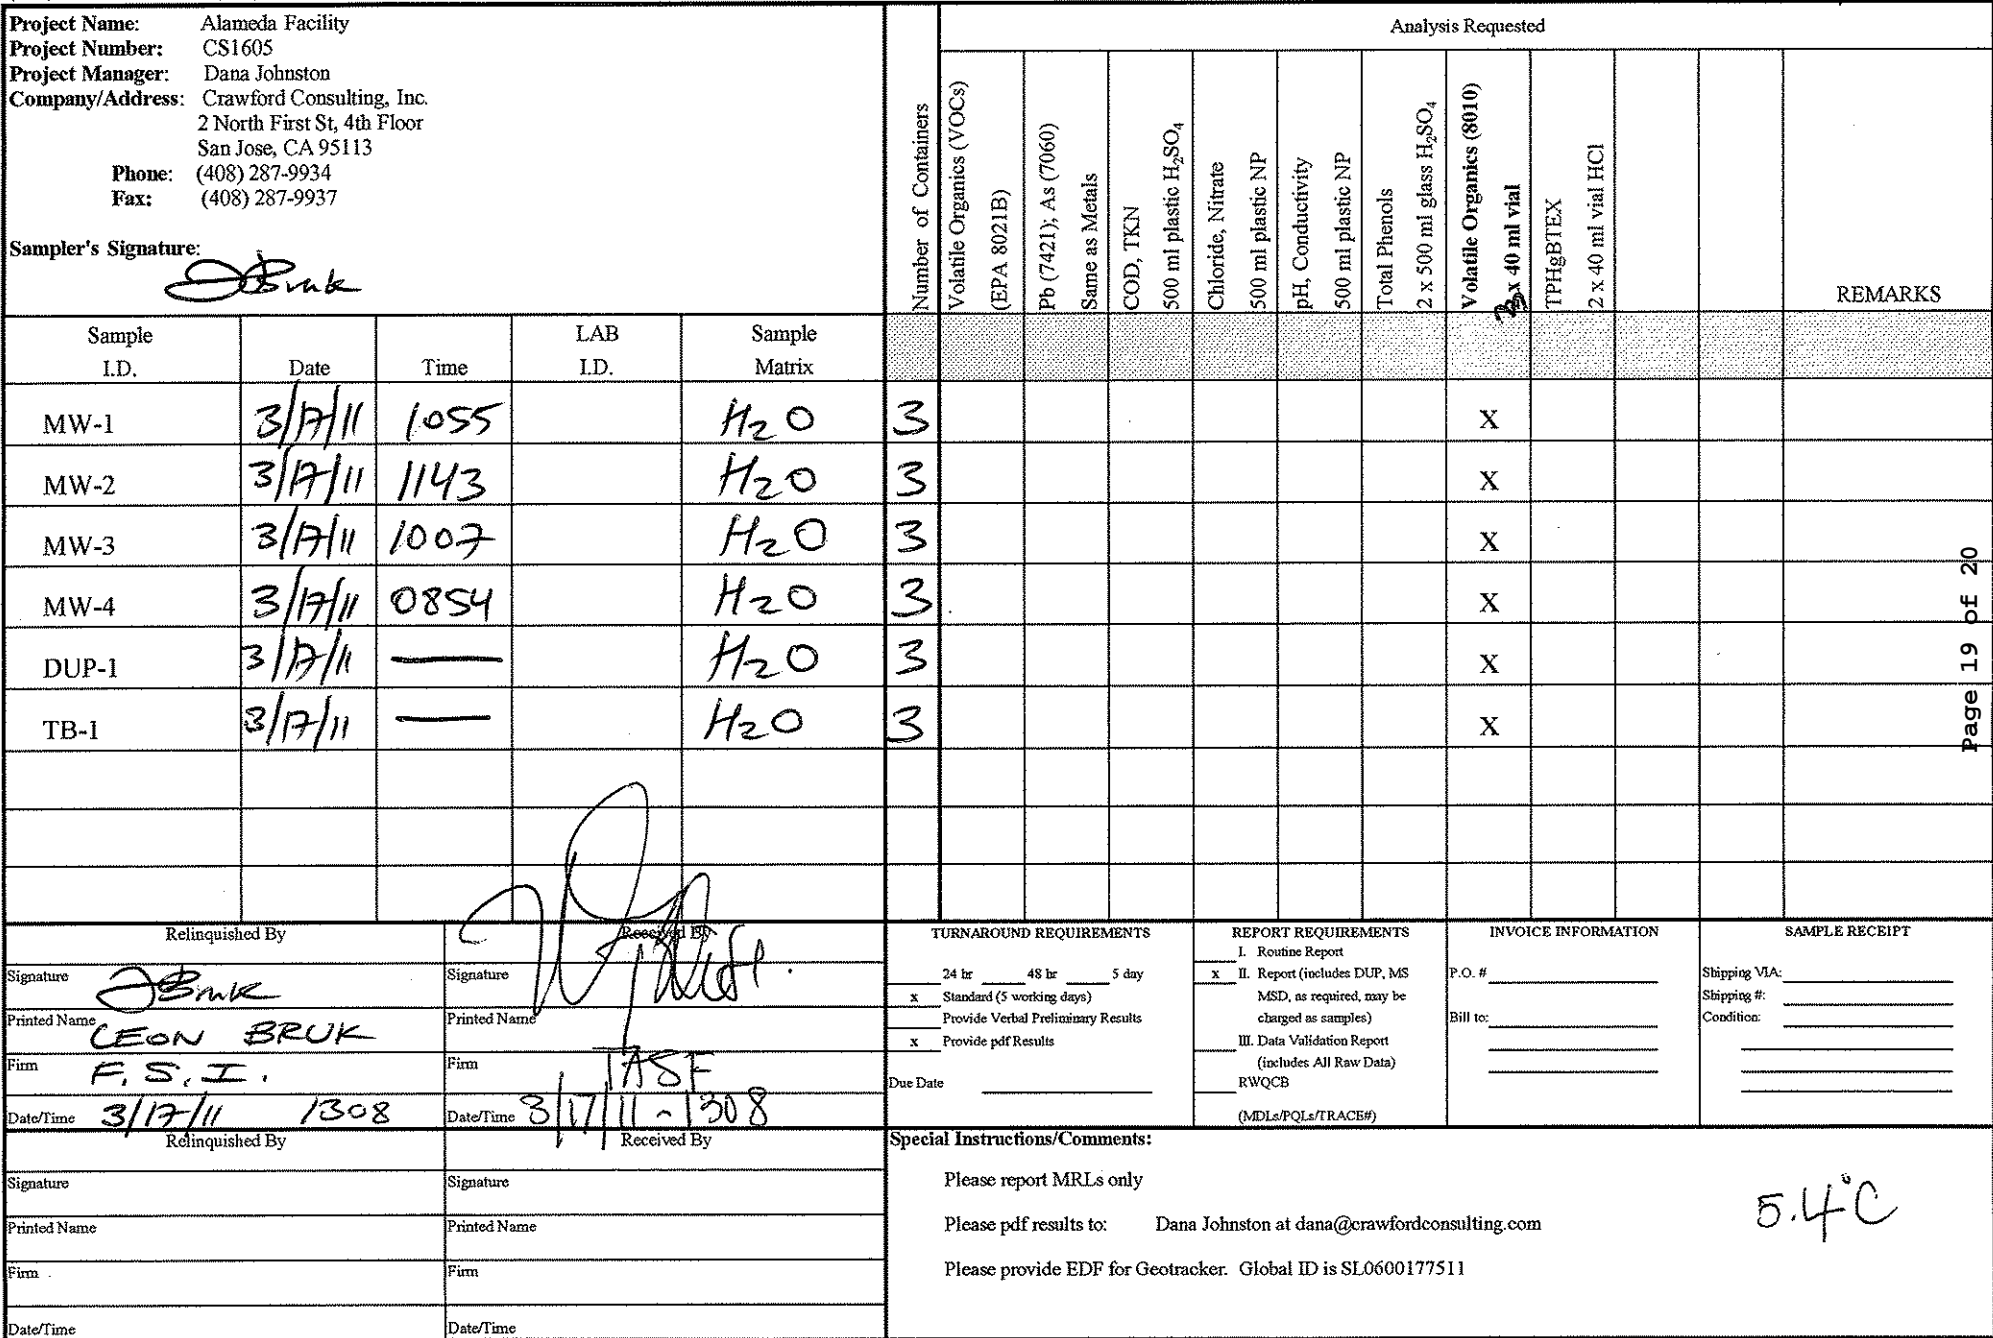 Project Name: Alameda Facility
Project Number: CS1605
Project Manager: Dana Johnston
Company/Address: Crawford Consulting, Inc.
2 North First St, 4th Floor
San Jose, CA 95113
Phone: (408) 287-9934
Fax: (408) 287-9937
Sampler's Signature:
Analysis Requested
Number of Containers
Volatile Organics (VOCs)
(EPA 8021B)
Pb (7421); As (7060)
Same as Metals
COD, TKN
500 ml plastic H₂SO₄
Chloride, Nitrate
500 ml plastic NP
pH, Conductivity
500 ml plastic NP
Total Phenols
2 x 500 ml glass H₂SO₄
Volatile Organics (8010)
3 x 40 ml vial
TPHgBTEX
2 x 40 ml vial HCl
REMARKS
Sample I.D. Date Time LAB I.D. Sample Matrix
MW-1 3/17/11 1055 H₂O 3 X
MW-2 3/17/11 1143 H₂O 3 X
MW-3 3/17/11 1007 H₂O 3 X
MW-4 3/17/11 0854 H₂O 3 X
DUP-1 3/17/11 — H₂O 3 X
TB-1 3/17/11 — H₂O 3 X
Page 19 of 20
Relinquished By
Signature
Printed Name LEON BRUK
Firm F.S.I.
Date/Time 3/17/11 1308
Received By
Signature
Printed Name
Firm TASF
Date/Time 3/17/11 - 1308
Relinquished By
Signature
Printed Name
Firm
Date/Time
Received By
Signature
Printed Name
Firm
Date/Time
TURNAROUND REQUIREMENTS
24 hr 48 hr 5 day
x Standard (5 working days)
Provide Verbal Preliminary Results
x Provide pdf Results
Due Date
REPORT REQUIREMENTS
I. Routine Report
x II. Report (includes DUP, MS
MSD, as required, may be
charged as samples)
III. Data Validation Report
(includes All Raw Data)
RWQCB
(MDLs/PQLs/TRACE#)
INVOICE INFORMATION
P.O. #
Bill to:
SAMPLE RECEIPT
Shipping VIA:
Shipping #:
Condition:
Special Instructions/Comments:
Please report MRLs only
Please pdf results to: Dana Johnston at dana@crawfordconsulting.com
Please provide EDF for Geotracker. Global ID is SL0600177511
5.4°C